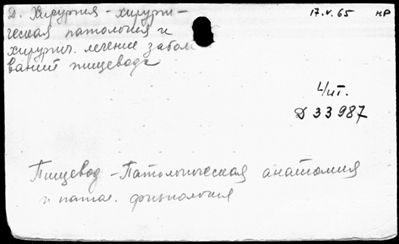 Д. Хирургия - хирурги- 17.V.65 кр
ческая патология и
хирургич. лечение забол
ваний пищевода
4/ит.
Д 33987
Пищевод - Патологическая анатомия
и патол. физиология